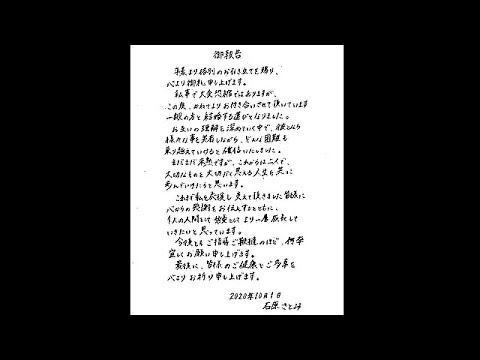 御報告
平素より格別のお引き立てを賜り、
心より御礼申し上げます。
私事で大変恐縮ではありますが、
この度、かねてよりお付き合いさせて頂いています
一般の方と結婚する運びとなりました。
お互いの理解を深めていく中で、彼となら
様々な事を共有しながら、どんな困難も
乗り越えていけると確信いたしました。
まだまだ未熟ですが、これからは二人で、
大切なものを大切だと思える人生を共に
歩んでいけたらと思います。
これまで私を応援し支えて頂きました皆様に
心からの感謝をお伝えするとともに、
1人の人間として、役者としてより一層成長して
いきたいと思っています。
今後ともご指導ご鞭撻のほど、何卒
宜しくお願い申し上げます。
最後に、皆様のご健康とご多幸を
心よりお祈り申し上げます。
2020年10月1日
石原さとみ